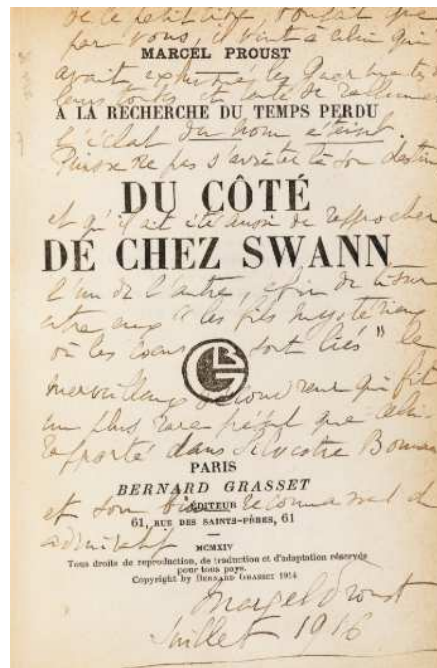 de ce petit
par vous, il vint à celui qui
MARCEL PROUST
avait exhumé les Guermantes
leurs
A LA RECHERCHE DU TEMPS PERDU
l'éclat du nom éteint.
Puisse ne pas s'arrêter là son destin
DU CÔTÉ
et qu'il ait été aussi de rapprocher
DE CHEZ SWANN
l'un de l'autre, afin de tisser
entre eux "les fils mystérieux
où les coeurs sont liés" le
merveilleux qui fit
un plus rare que celui
rapporté dans Silvestre Bonnard
PARIS
BERNARD GRASSET
et son reconnaissant et
ÉDITEUR
61, RUE DES SAINTS-PÈRES, 61
admiratif
MCMXIV
Tous droits de reproduction, de traduction et d'adaptation réservés
pour tous pays.
Copyright by BERNARD GRASSET 1914
Marcel Proust
Juillet 1916